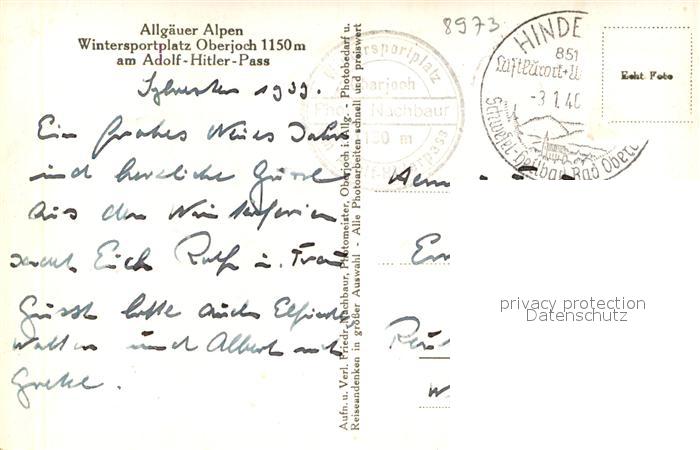 Allgäuer Alpen
Wintersportplatz Oberjoch 1150 m
am Adolf-Hitler-Pass
Sylvester 1939.
Ein frohes Neues Jahr
und herzliche Grüsse
aus den Winterferien
sendet Euch Rolf u. Frau
Grüsst bitte auch Elfriede
Walter und Albert und
Grete.
Aufn. u. Verl. Friedr. Nachbaur, Photomeister, Oberjoch i. Allg. - Photobedarf u.
Reiseandenken in großer Auswahl - Alle Photoarbeiten schnell und preiswert
Wintersportplatz
Oberjoch
Photo Nachbaur
1150 m
Adolf-Hitlerpass
8973
HINDE
851
Luftkurort u. W
-3.1.40
Schwefel-Heilbad Bad Oberd
Echt Foto
privacy protection
Datenschutz